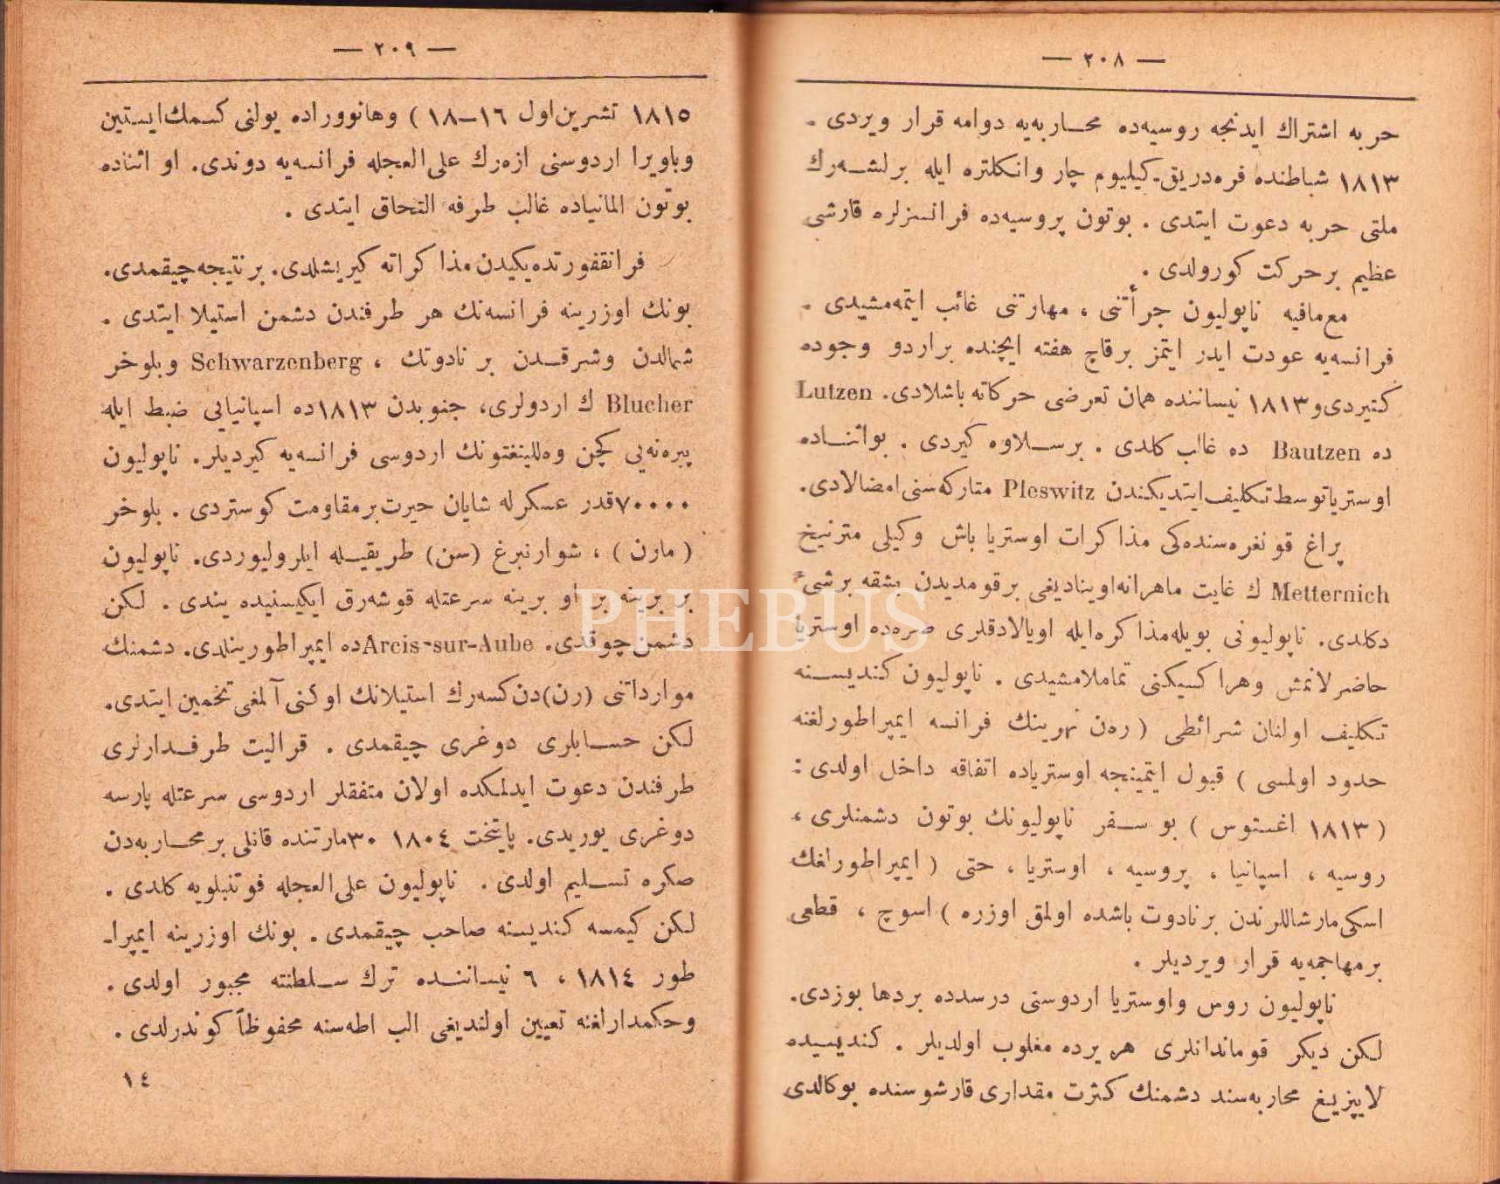 — ٢٠٨ —
حربه اشتراك ايدنجه روسيه‌ده محاربه‌يه دوامه قرار ويردى .
١٨١٣ شباطنده فره‌دريق-كيليوم چار وانكلتره ايله برلشه‌رك
ملتى حربه دعوت ايتدى . بوتون پروسيه‌ده فرانسزلره قارشى
عظيم برحركت كورولدى .
مع‌مافيه ناپوليون جرأتنى ، مهارتنى غائب ايتمه‌مشيدى .
فرانسه‌يه عودت ايدر ايتمز برقاچ هفته ايچنده براردو وجوده
كتيردى و١٨١٣ نيساننده همان تعرضى حركاته باشلادى. Lutzen
ده Bautzen ده غالب كلدى . برسلاوه كيردى . بواثناده
اوسترياتوسط تكليف ايتديكندن Pleswitz متاركه‌سنى امضالادى.
پراغ قونغره‌سنده‌كى مذاكرات اوستريا باش وكيلى مترنيخ
Metternich ك غايت ماهرانه اوينادیغى برقومديدن بشقه برشى
دكلدى. ناپوليونى بويله مذاكره ايله اويالادقلرى صره‌ده اوستريا
حاضرلانمش وهر اكسيكنى تماملامشيدى . ناپوليون كنديسنه
تكليف اولنان شرائطى ( ره‌ن نهرينك فرانسه ايمپراطورلغنه
حدود اولمسى ) قبول ايتمينجه اوسترياده اتفاقه داخل اولدى :
( ١٨١٣ اغستوس ) بو سفر ناپوليونك بوتون دشمنلرى ،
روسيه ، اسپانيا ، پروسيه ، اوستريا ، حتى ( ايمپراطورلغك
اسكى مارشاللرندن برنادوت باشده اولمق اوزره ) اسوج ، قطعى
برمهاجمه‌يه قرار ويرديلر .
ناپوليون روس واوستريا اردوسنى درسده‌ده بردها بوزدى.
لكن ديكر قوماندانلرى هريرده مغلوب اولديلر . كنديسيده
لايپزيغ محاربه‌سند دشمنك كثرت مقدارى قارشوسنده بوكالدى
— ٢٠٩ —
١٨١٥ تشرين اول ١٦-١٨ ) وهانوورا‌ده يولنى كسمك ايستين
وباويرا اردوسنى ازه‌رك على‌العجله فرانسه‌يه دوندى. او اثناده
بوتون المانياده غالب طرفه التحاق ايتدى .
فرانقفورتده يكيدن مذاكراته كيريشلدى. برنتيجه چيقمدى.
بونك اوزرينه فرانسه‌نك هر طرفندن دشمن استيلا ايتدى .
شمالدن وشرقدن برنادوتك ، Schwarzenberg وبلوخر
Blucher ك اردولرى، جنوبدن ١٨١٣ده اسپانيايى ضبط ايله
پيره‌نه‌يى كچن وه‌للينغتونك اردوسى فرانسه‌يه كيرديلر. ناپوليون
٧٠٠٠٠قدر عسكرله شايان حيرت برمقاومت كوستردى . بلوخر
( مارن ) ، شوارنبرغ (سن) طريقيله ايلروليوردى. ناپوليون
بر برينه بر او برينه سرعتله قوشه‌رق ايكيسنيده يندى . لكن
دشمن چوقدى. Arcis-sur-Aube ده ايمپراطور ينلدى. دشمنك
مواردا‌تنى (رن)دن كسه‌رك استيلانك اوكنى آلمغى تخمين ايتدى.
لكن حسابلرى دوغرى چيقمدى . قراليت طرفدارلرى
طرفندن دعوت ايدلمكده اولان متفقلر اردوسى سرعتله پارسه
دوغرى يوريدى. پايتخت ١٨٠٤ ٣٠مارتنده قانلى برمحاربه‌دن
صكره تسليم اولدى . ناپوليون على‌العجله فوتنبلويه كلدى .
لكن كيمسه كنديسنه صاحب چيقمدى . بونك اوزرينه ايمپرا-
طور ١٨١٤ ، ٦ نيساننده ترك سلطنته مجبور اولدى .
وحكمدارلغنه تعيين اولنديغى الب اطه‌سنه محفوظاً كوندرلدى .
١٤
PHEBUS